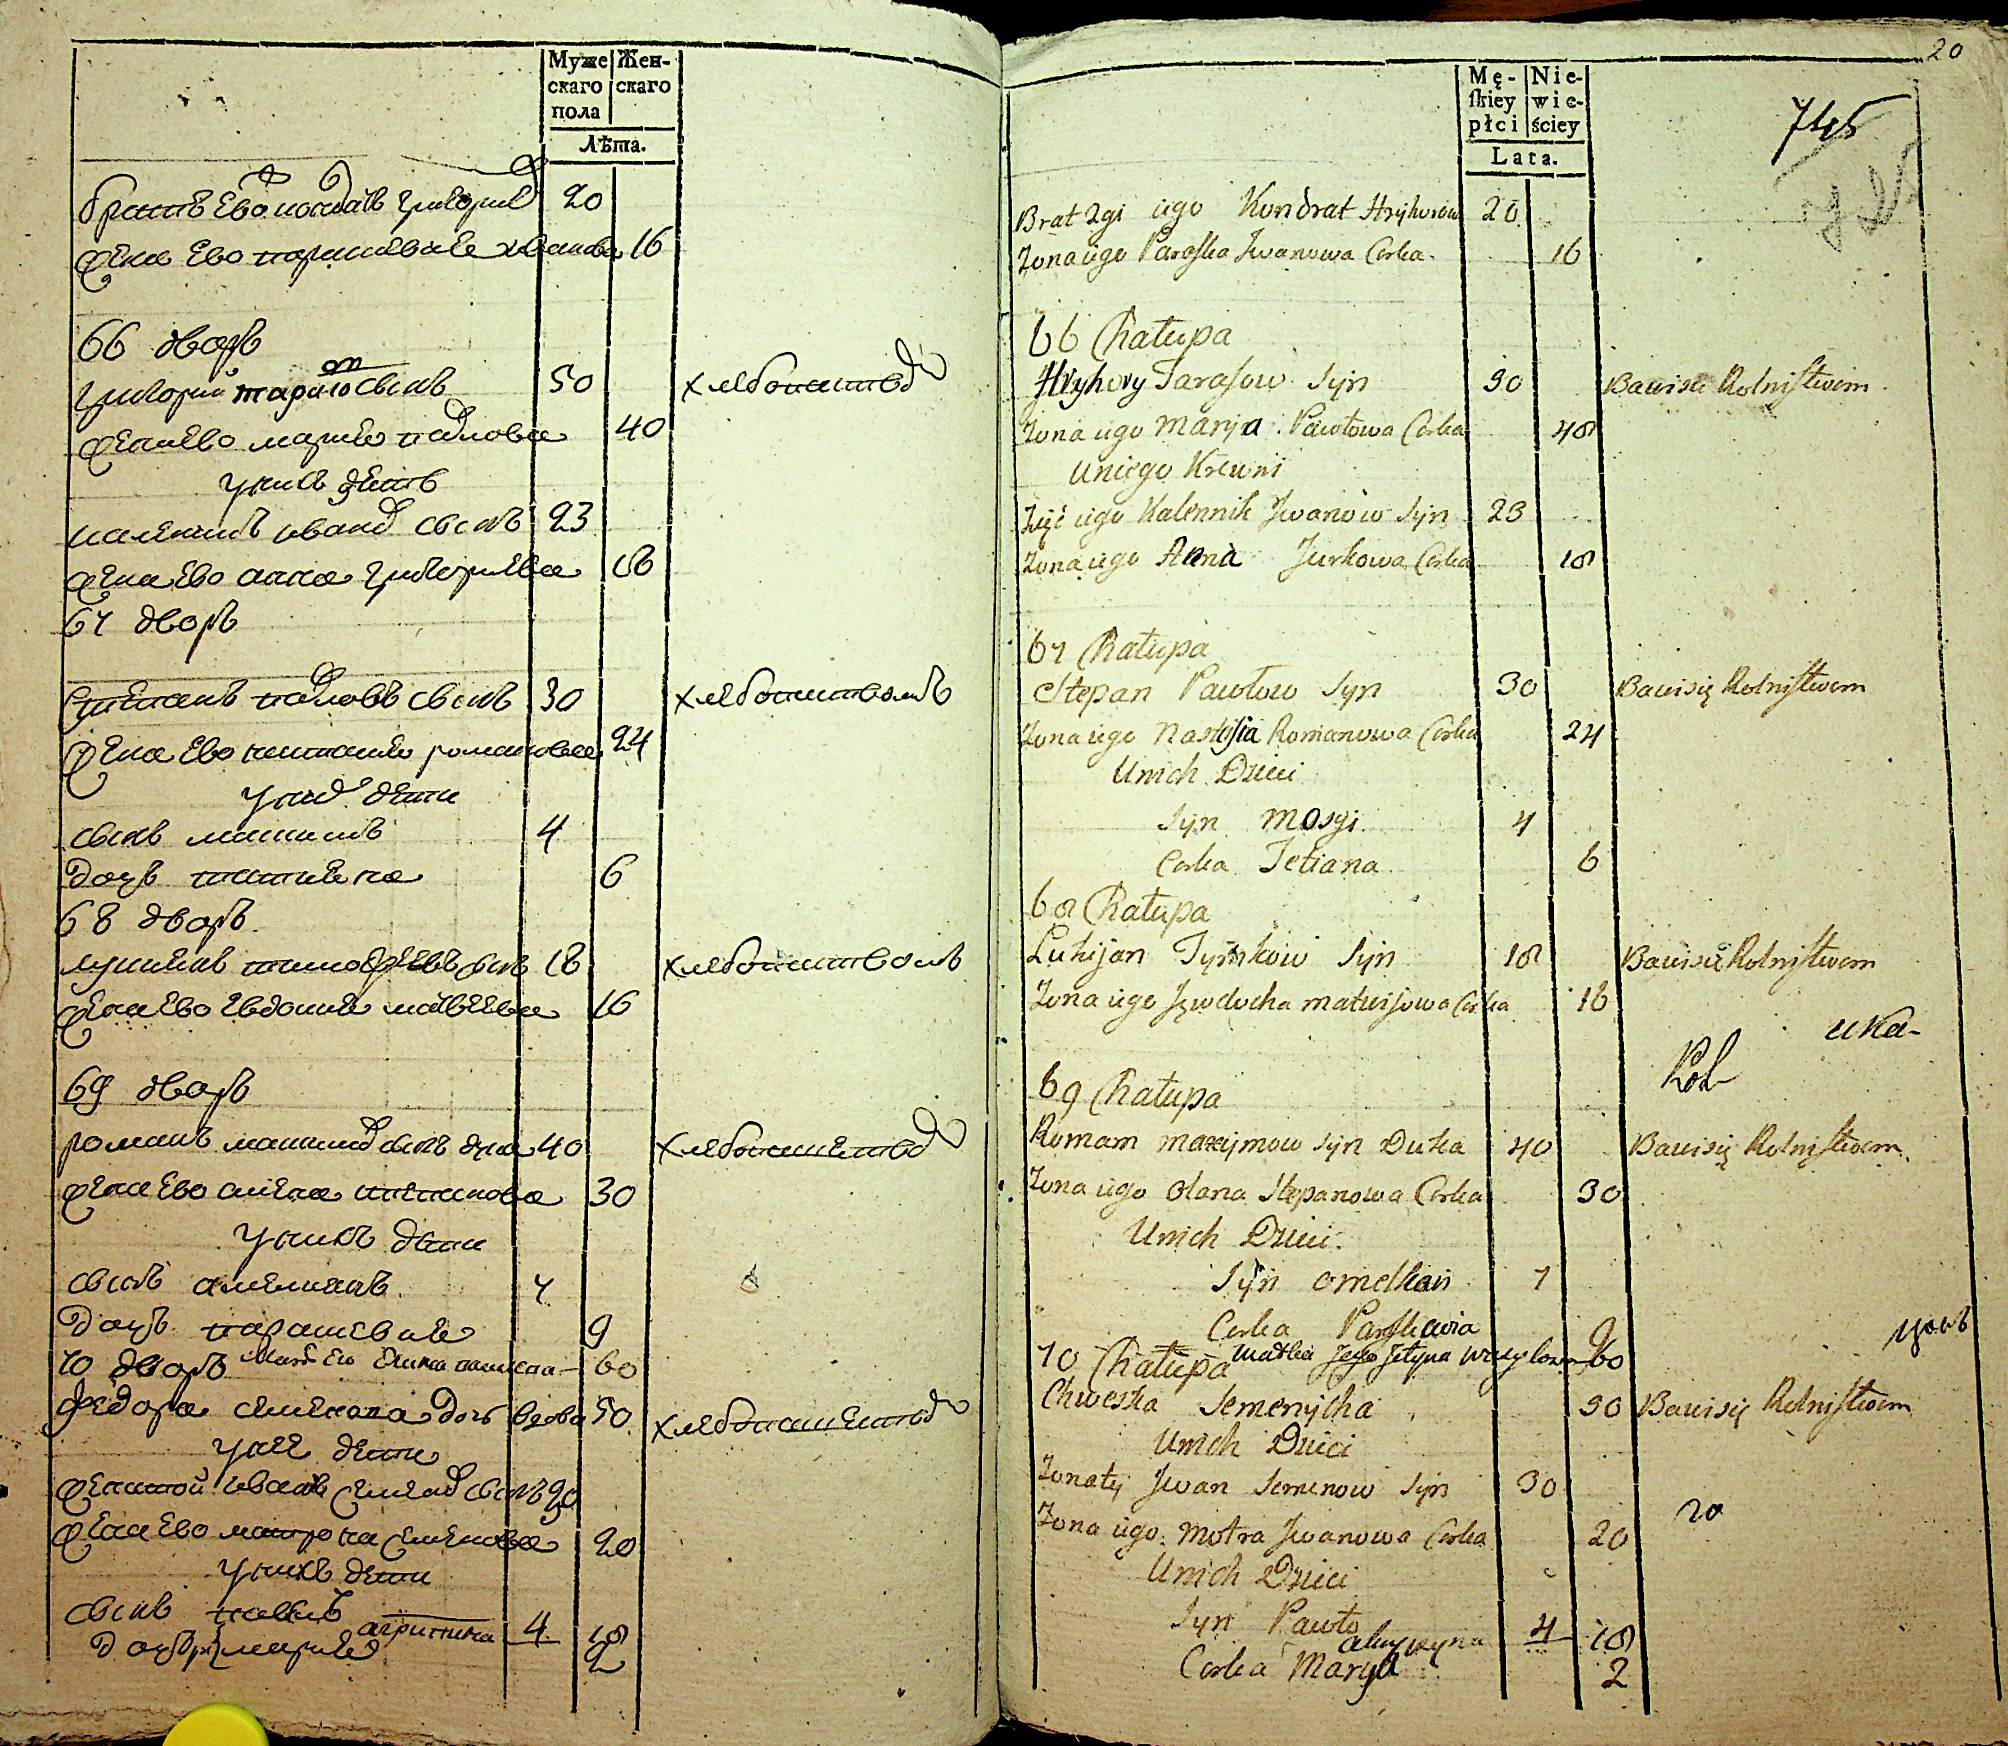 Муже
скаго
пола
Жен-
скаго
Лѣта.
братъ ево кондратъ григориевъ 20
жена ево парасковие иванова 16
66 дворъ
григорий тарасовъ сынъ 50 хлебопашествомъ
жена ево марие павлова 40
у нихъ зять
каленикъ ивановъ сынъ 23
жена ево анна григориева 18
67 дворъ
степанъ павловъ сынъ 30 хлебопашествомъ
жена ево настасие романова 24
у нихъ дети
сынъ 4
дочь татиена 6
68 дворъ
лукиенъ тимофеевъ сынъ 18 хлебопашествомъ
жена ево евдокие матвеева 16
69 дворъ
романъ максимовъ сынъ дука 40 хлебопашествомъ
жена ево алена степанова 30
у нихъ дети
сынъ амелианъ 7
дочь парасковие 9
70 дворъ 60
федора семенова дочь вдова 50 хлебопашествомъ
у нее дети
женатой иванъ семеновъ сынъ 30
жена ево матрона семенова 20
у нихъ дети
сынъ павелъ 4
агрипина 18
дочь марие 2
20
Mę-
skiey
płci
Nie-
wie-
ściey
Lata.
745
Brat 2gi iego Kondrat Hryhorow 20
Zona iego Paraska Jwanowa Corka 16
66 Chałupa
Hryhory Tarasow Syn 50 Bawisie Rolnistwem
Zona iego Maryia Pawłowa Corka 48
Uniego Krewni
Zięć iego Kalennik Jwanow Syn 23
Zona iego Anna Jurkowa Corka 18
67 Chałupa
Stepan Pawłow Syn 30 Bawisię Rolnistwem
Zona iego Nastasia Romanowa Corka 24
Unich Dzieci
Syn Mosyi 4
Corka Tetiana 6
68 Chałupa
Lukijan Tymkow Syn 18 Bawisie Rolnistwem
Zona iego Jewdocha Matwijowa Corka 16
69 Chałupa
Romam Maxymow Syn Duka 40 Bawisię Rolnistwem
Zona iego Olana Stepanowa Corka 30
Unich Dzieci
Syn Omelkan 7
Corka Paraskawia 9
70 Chałupa Matka Jego 60
Chweska Semenycha 50 Bawisię Rolnistwem
Unich Dzieci
Zonaty Jwan Semenow Syn 30
Zona iego Motra Jwanowa Corka 20
Unich Dzieci
Syn Pawło 4
18
Corka Marya 2